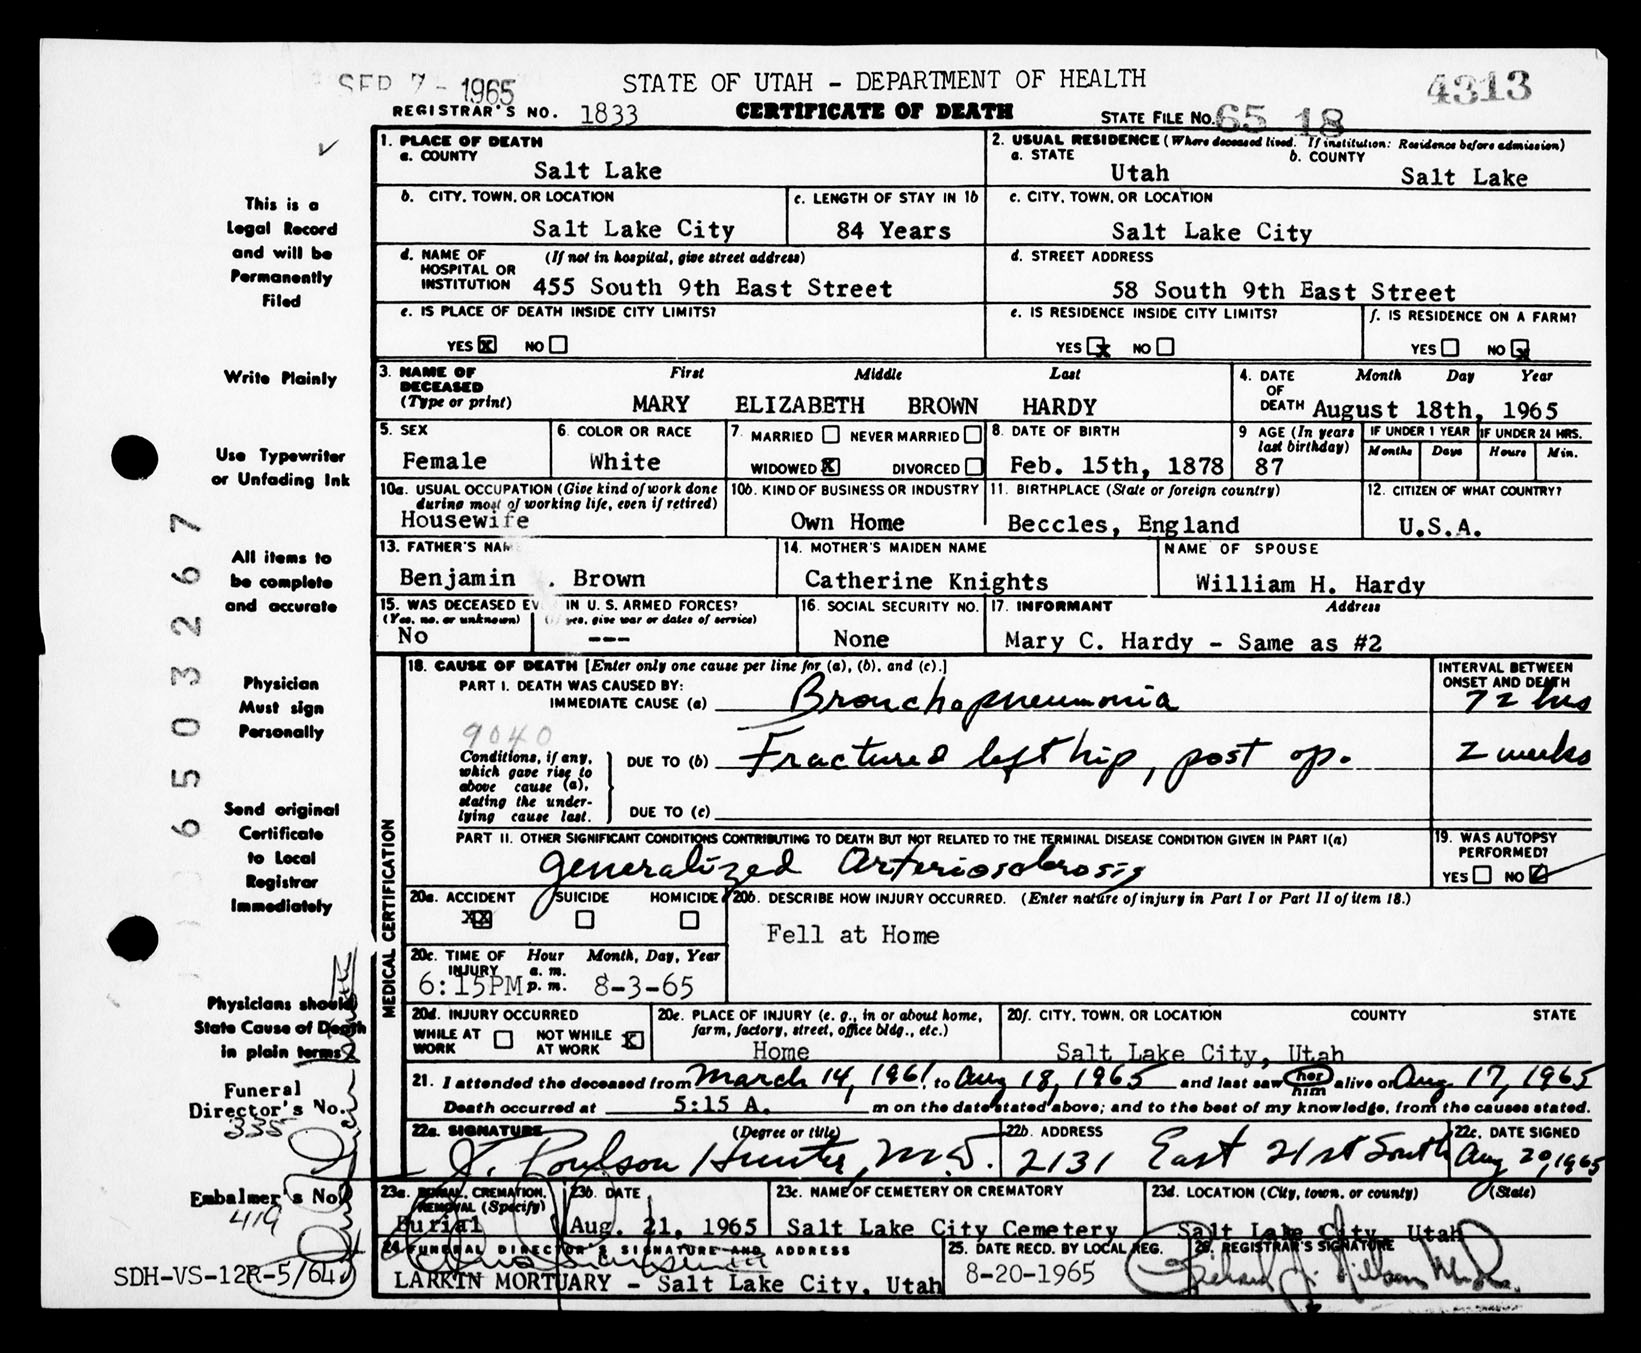 SEP 7 - 1965
STATE OF UTAH - DEPARTMENT OF HEALTH
4313
REGISTRAR'S NO. 1833
CERTIFICATE OF DEATH
STATE FILE NO. 65 18
1. PLACE OF DEATH
a. COUNTY
Salt Lake
2. USUAL RESIDENCE (Where deceased lived. If institution: Residence before admission)
a. STATE b. COUNTY
Utah Salt Lake
b. CITY, TOWN, OR LOCATION
Salt Lake City
c. LENGTH OF STAY IN 1b
84 Years
c. CITY, TOWN, OR LOCATION
Salt Lake City
d. NAME OF HOSPITAL OR INSTITUTION (If not in hospital, give street address)
455 South 9th East Street
d. STREET ADDRESS
58 South 9th East Street
e. IS PLACE OF DEATH INSIDE CITY LIMITS?
YES X NO
e. IS RESIDENCE INSIDE CITY LIMITS?
YES x NO
f. IS RESIDENCE ON A FARM?
YES NO x
3. NAME OF DECEASED (Type or print)
First Middle Last
MARY ELIZABETH BROWN HARDY
4. DATE OF DEATH Month Day Year
August 18th, 1965
5. SEX
Female
6. COLOR OR RACE
White
7. MARRIED NEVER MARRIED
WIDOWED X DIVORCED
8. DATE OF BIRTH
Feb. 15th, 1878
9 AGE (In years last birthday)
87
IF UNDER 1 YEAR IF UNDER 24 HRS.
Months Days Hours Min.
10a. USUAL OCCUPATION (Give kind of work done during most of working life, even if retired)
Housewife
10b. KIND OF BUSINESS OR INDUSTRY
Own Home
11. BIRTHPLACE (State or foreign country)
Beccles, England
12. CITIZEN OF WHAT COUNTRY?
U.S.A.
13. FATHER'S NAM
Benjamin . Brown
14. MOTHER'S MAIDEN NAME
Catherine Knights
NAME OF SPOUSE
William H. Hardy
15. WAS DECEASED EV IN U. S. ARMED FORCES?
(Yes, no, or unknown) yes, give war or dates of service)
No ---
16. SOCIAL SECURITY NO.
None
17. INFORMANT Address
Mary C. Hardy - Same as #2
MEDICAL CERTIFICATION
18. CAUSE OF DEATH [Enter only one cause per line for (a), (b), and (c).]
INTERVAL BETWEEN ONSET AND DEATH
PART I. DEATH WAS CAUSED BY:
IMMEDIATE CAUSE (a) Bronchopneumonia 72 hrs
9040
Conditions, if any, which gave rise to above cause (a), stating the under-lying cause last.
DUE TO (b) Fractured left hip, post op. 2 weeks
DUE TO (c)
PART II. OTHER SIGNIFICANT CONDITIONS CONTRIBUTING TO DEATH BUT NOT RELATED TO THE TERMINAL DISEASE CONDITION GIVEN IN PART I(a)
generalized arteriosclerosis
19. WAS AUTOPSY PERFORMED?
YES NO
20a. ACCIDENT SUICIDE HOMICIDE
XX
20b. DESCRIBE HOW INJURY OCCURRED. (Enter nature of injury in Part I or Part II of item 18.)
Fell at Home
20c. TIME OF INJURY Hour a. m. p. m. Month, Day, Year
6:15PM 8-3-65
20d. INJURY OCCURRED
WHILE AT WORK NOT WHILE AT WORK X
20e. PLACE OF INJURY (e. g., in or about home, farm, factory, street, office bldg., etc.)
Home
20f. CITY, TOWN, OR LOCATION COUNTY STATE
Salt Lake City, Utah
21. I attended the deceased from March 14, 1961, to Aug 18, 1965 and last saw her him alive on Aug 17, 1965
Death occurred at 5:15 A. m on the date stated above; and to the best of my knowledge, from the causes stated.
22a. SIGNATURE (Degree or title)
J. Poulson Hunter, M.D.
22b. ADDRESS
2131 East 21st South
22c. DATE SIGNED
Aug 20, 1965
23a. BURIAL, CREMATION, REMOVAL (Specify)
Burial
23b. DATE
Aug. 21, 1965
23c. NAME OF CEMETERY OR CREMATORY
Salt Lake City Cemetery
23d. LOCATION (City, town, or county) (State)
Salt Lake City, Utah
24. FUNERAL DIRECTOR'S SIGNATURE AND ADDRESS
LARKIN MORTUARY - Salt Lake City, Utah
25. DATE RECD. BY LOCAL REG.
8-20-1965
26. REGISTRAR'S SIGNATURE
This is a
Legal Record
and will be
Permanently
Filed
Write Plainly
Use Typewriter
or Unfading Ink
All items to
be complete
and accurate
Physician
Must sign
Personally
Send original
Certificate
to Local
Registrar
Immediately
Physicians should
State Cause of Death
in plain terms
Funeral
Director's No.
335
Embalmer's No.
419
SDH-VS-12R-5/64
6503267